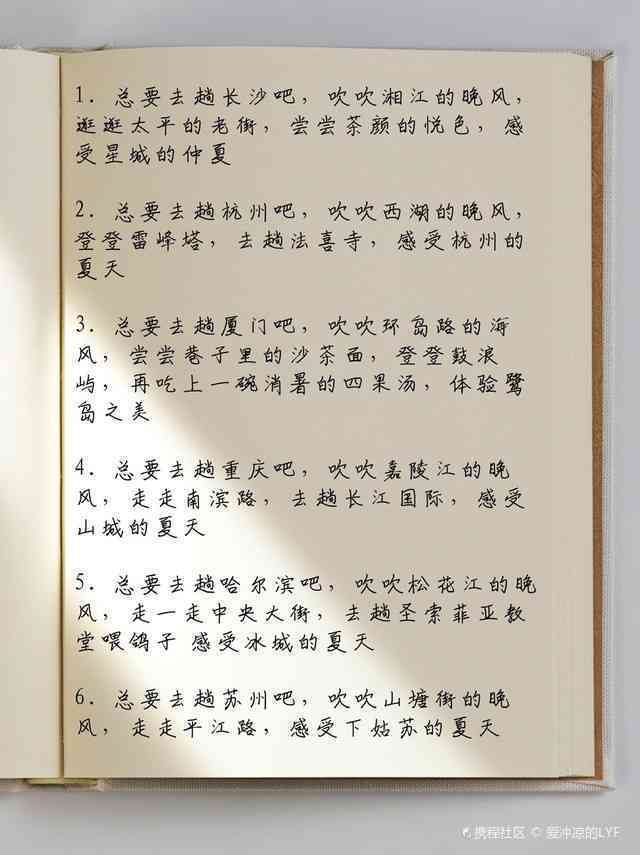 1. 总要去趟长沙吧，吹吹湘江的晚风，
逛逛太平的老街，尝尝茶颜的悦色，感
受星城的仲夏
2. 总要去趟杭州吧，吹吹西湖的晚风，
登登雷峰塔，去趟法喜寺，感受杭州的
夏天
3. 总要去趟厦门吧，吹吹环岛路的海
风，尝尝巷子里的沙茶面，登登鼓浪
屿，再吃上一碗消暑的四果汤，体验鹭
岛之美
4. 总要去趟重庆吧，吹吹嘉陵江的晚
风，走走南滨路，去趟长江国际，感受
山城的夏天
5. 总要去趟哈尔滨吧，吹吹松花江的晚
风，走一走中央大街，去趟圣索菲亚教
堂喂鸽子 感受冰城的夏天
6. 总要去趟苏州吧，吹吹山塘街的晚
风，走走平江路，感受下姑苏的夏天
携程社区 © 爱冲凉的LYF